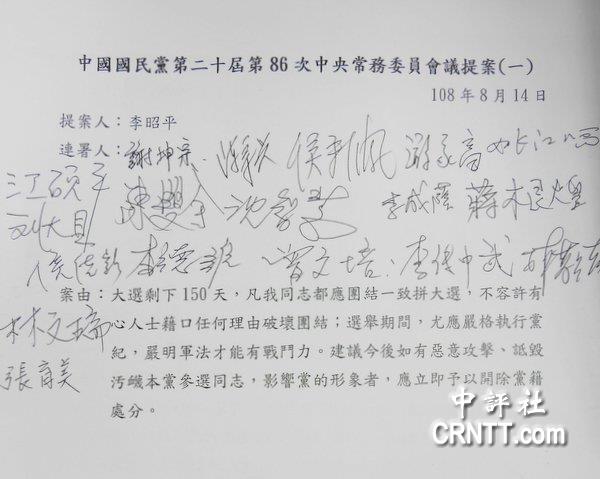 中國國民黨第二十屆第86次中央常務委員會議提案(一)
108年8月14日
提案人：李昭平
連署人：謝坤宗
江碩平 陳雙全 沈智慧 李成蔭 蔣根煌
刘大貝
侯彩鳳 李德 曾文培 李傳中武
案由：大選剩下150天，凡我同志都應團結一致拼大選，不容許有
心人士藉口任何理由破壞團結；選舉期間，尤應嚴格執行黨
林文瑞
紀，嚴明軍法才能有戰鬥力。建議今後如有惡意攻擊、詆毀
張育美
污衊本黨參選同志，影響黨的形象者，應立即予以開除黨籍
處分。
中評社
CRNTT.com